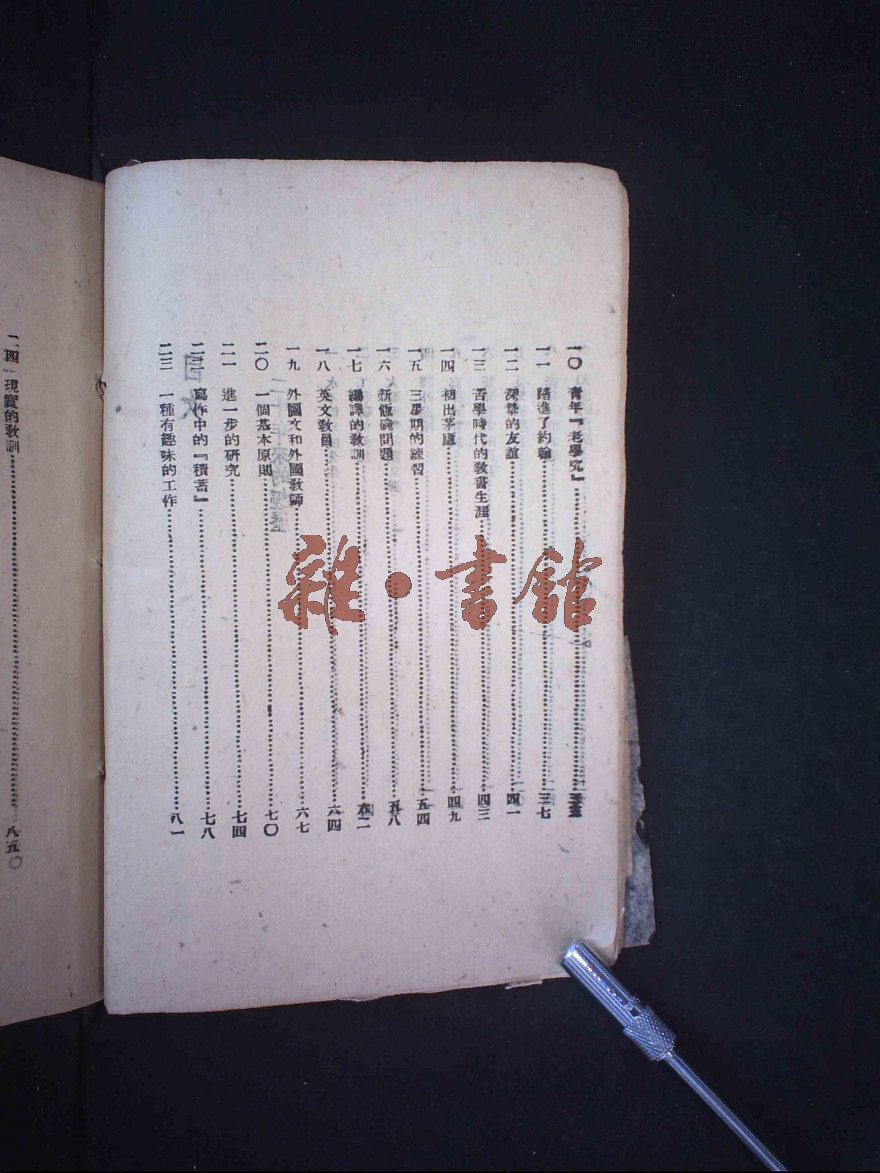 一〇 青年『老學究』
一一 踏進了約翰……三七
一二 深摯的友誼……四一
一三 苦學時代的教書生涯……四三
一四 初出茅廬……四九
一五 三星期的練習……五四
一六 新飯碗問題……五八
一七 編譯的教訓……六二
一八 英文教員……六四
一九 外國文和外國教師……六七
二〇 一個基本原則……七〇
二一 進一步的研究……七四
二二 寫作中的『積蓄』……七八
二三 一種有趣味的工作……八一
二四 現實的教訓……八五
雜·書館